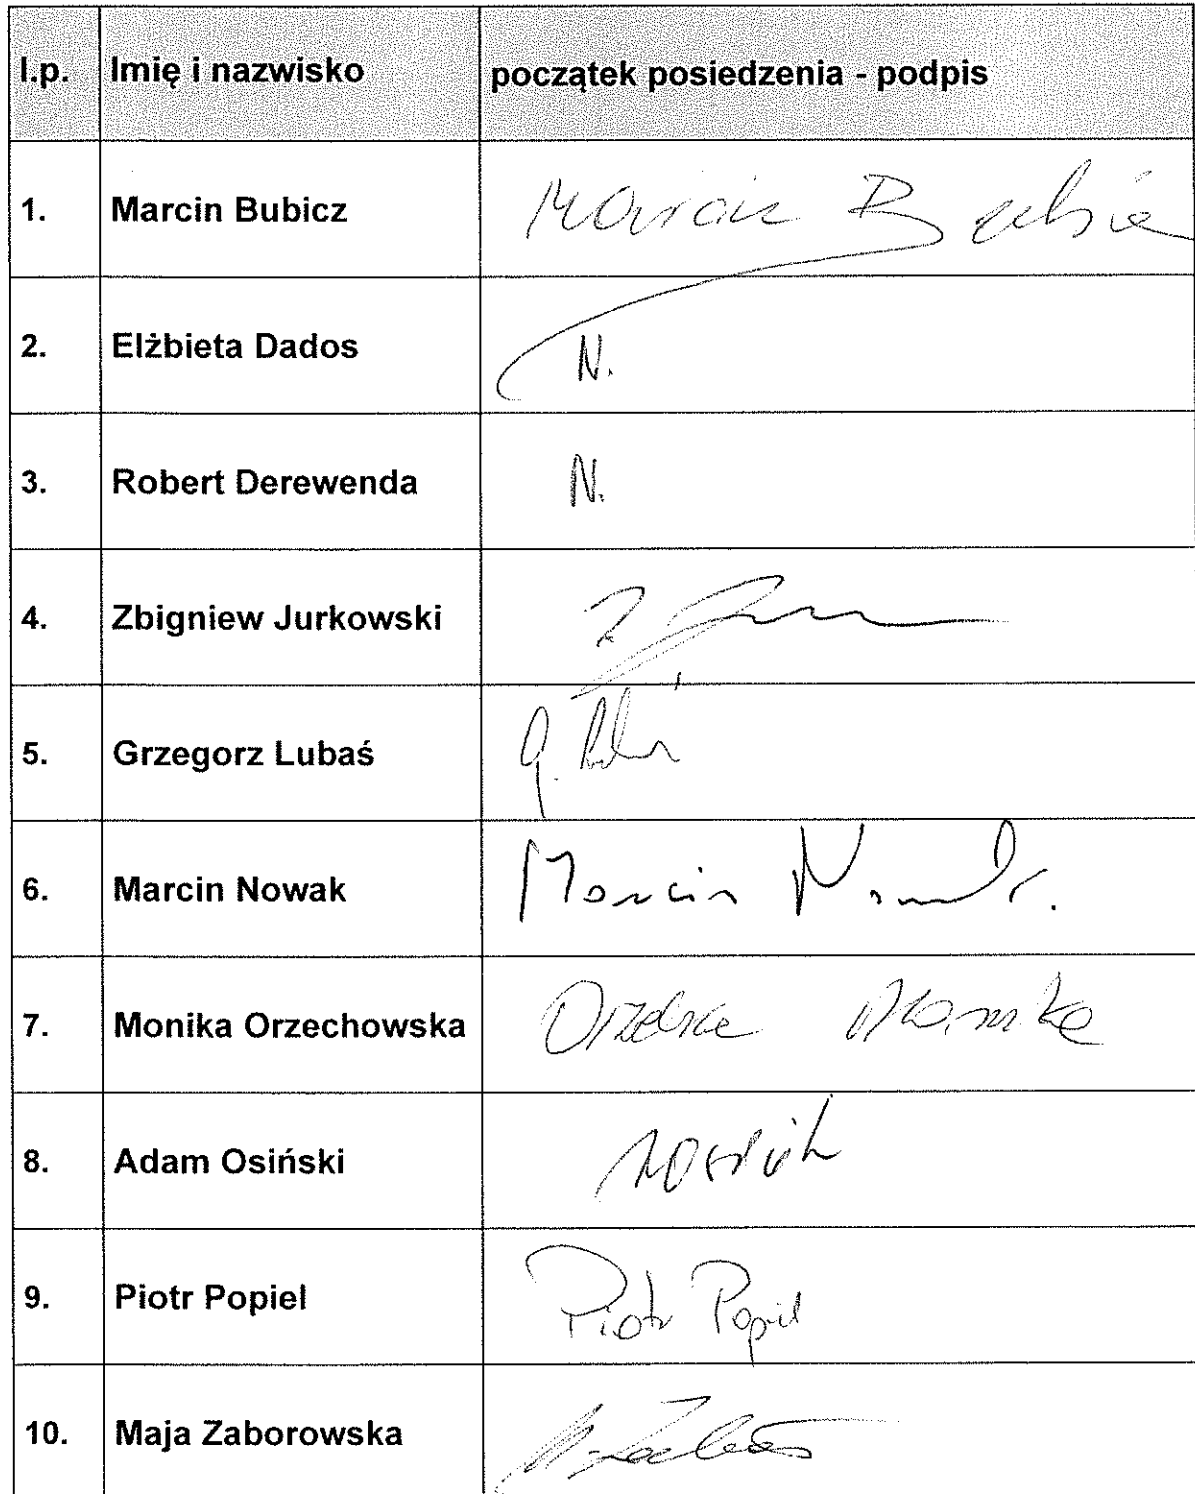 l.p. Imię i nazwisko początek posiedzenia - podpis
1. Marcin Bubicz Marcin Bubicz
2. Elżbieta Dados N.
3. Robert Derewenda N.
4. Zbigniew Jurkowski
5. Grzegorz Lubaś
6. Marcin Nowak Marcin Nowak.
7. Monika Orzechowska
8. Adam Osiński
9. Piotr Popiel Piotr Popiel
10. Maja Zaborowska